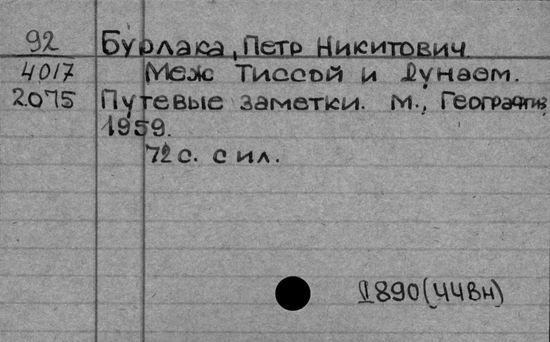 92 Бурлака, Петр Никитович
4017 Меж Тиссой и Дунаем.
2075 Путевые заметки. М., Географгиз
1959.
72 с. с ил.
II890(44Вн)